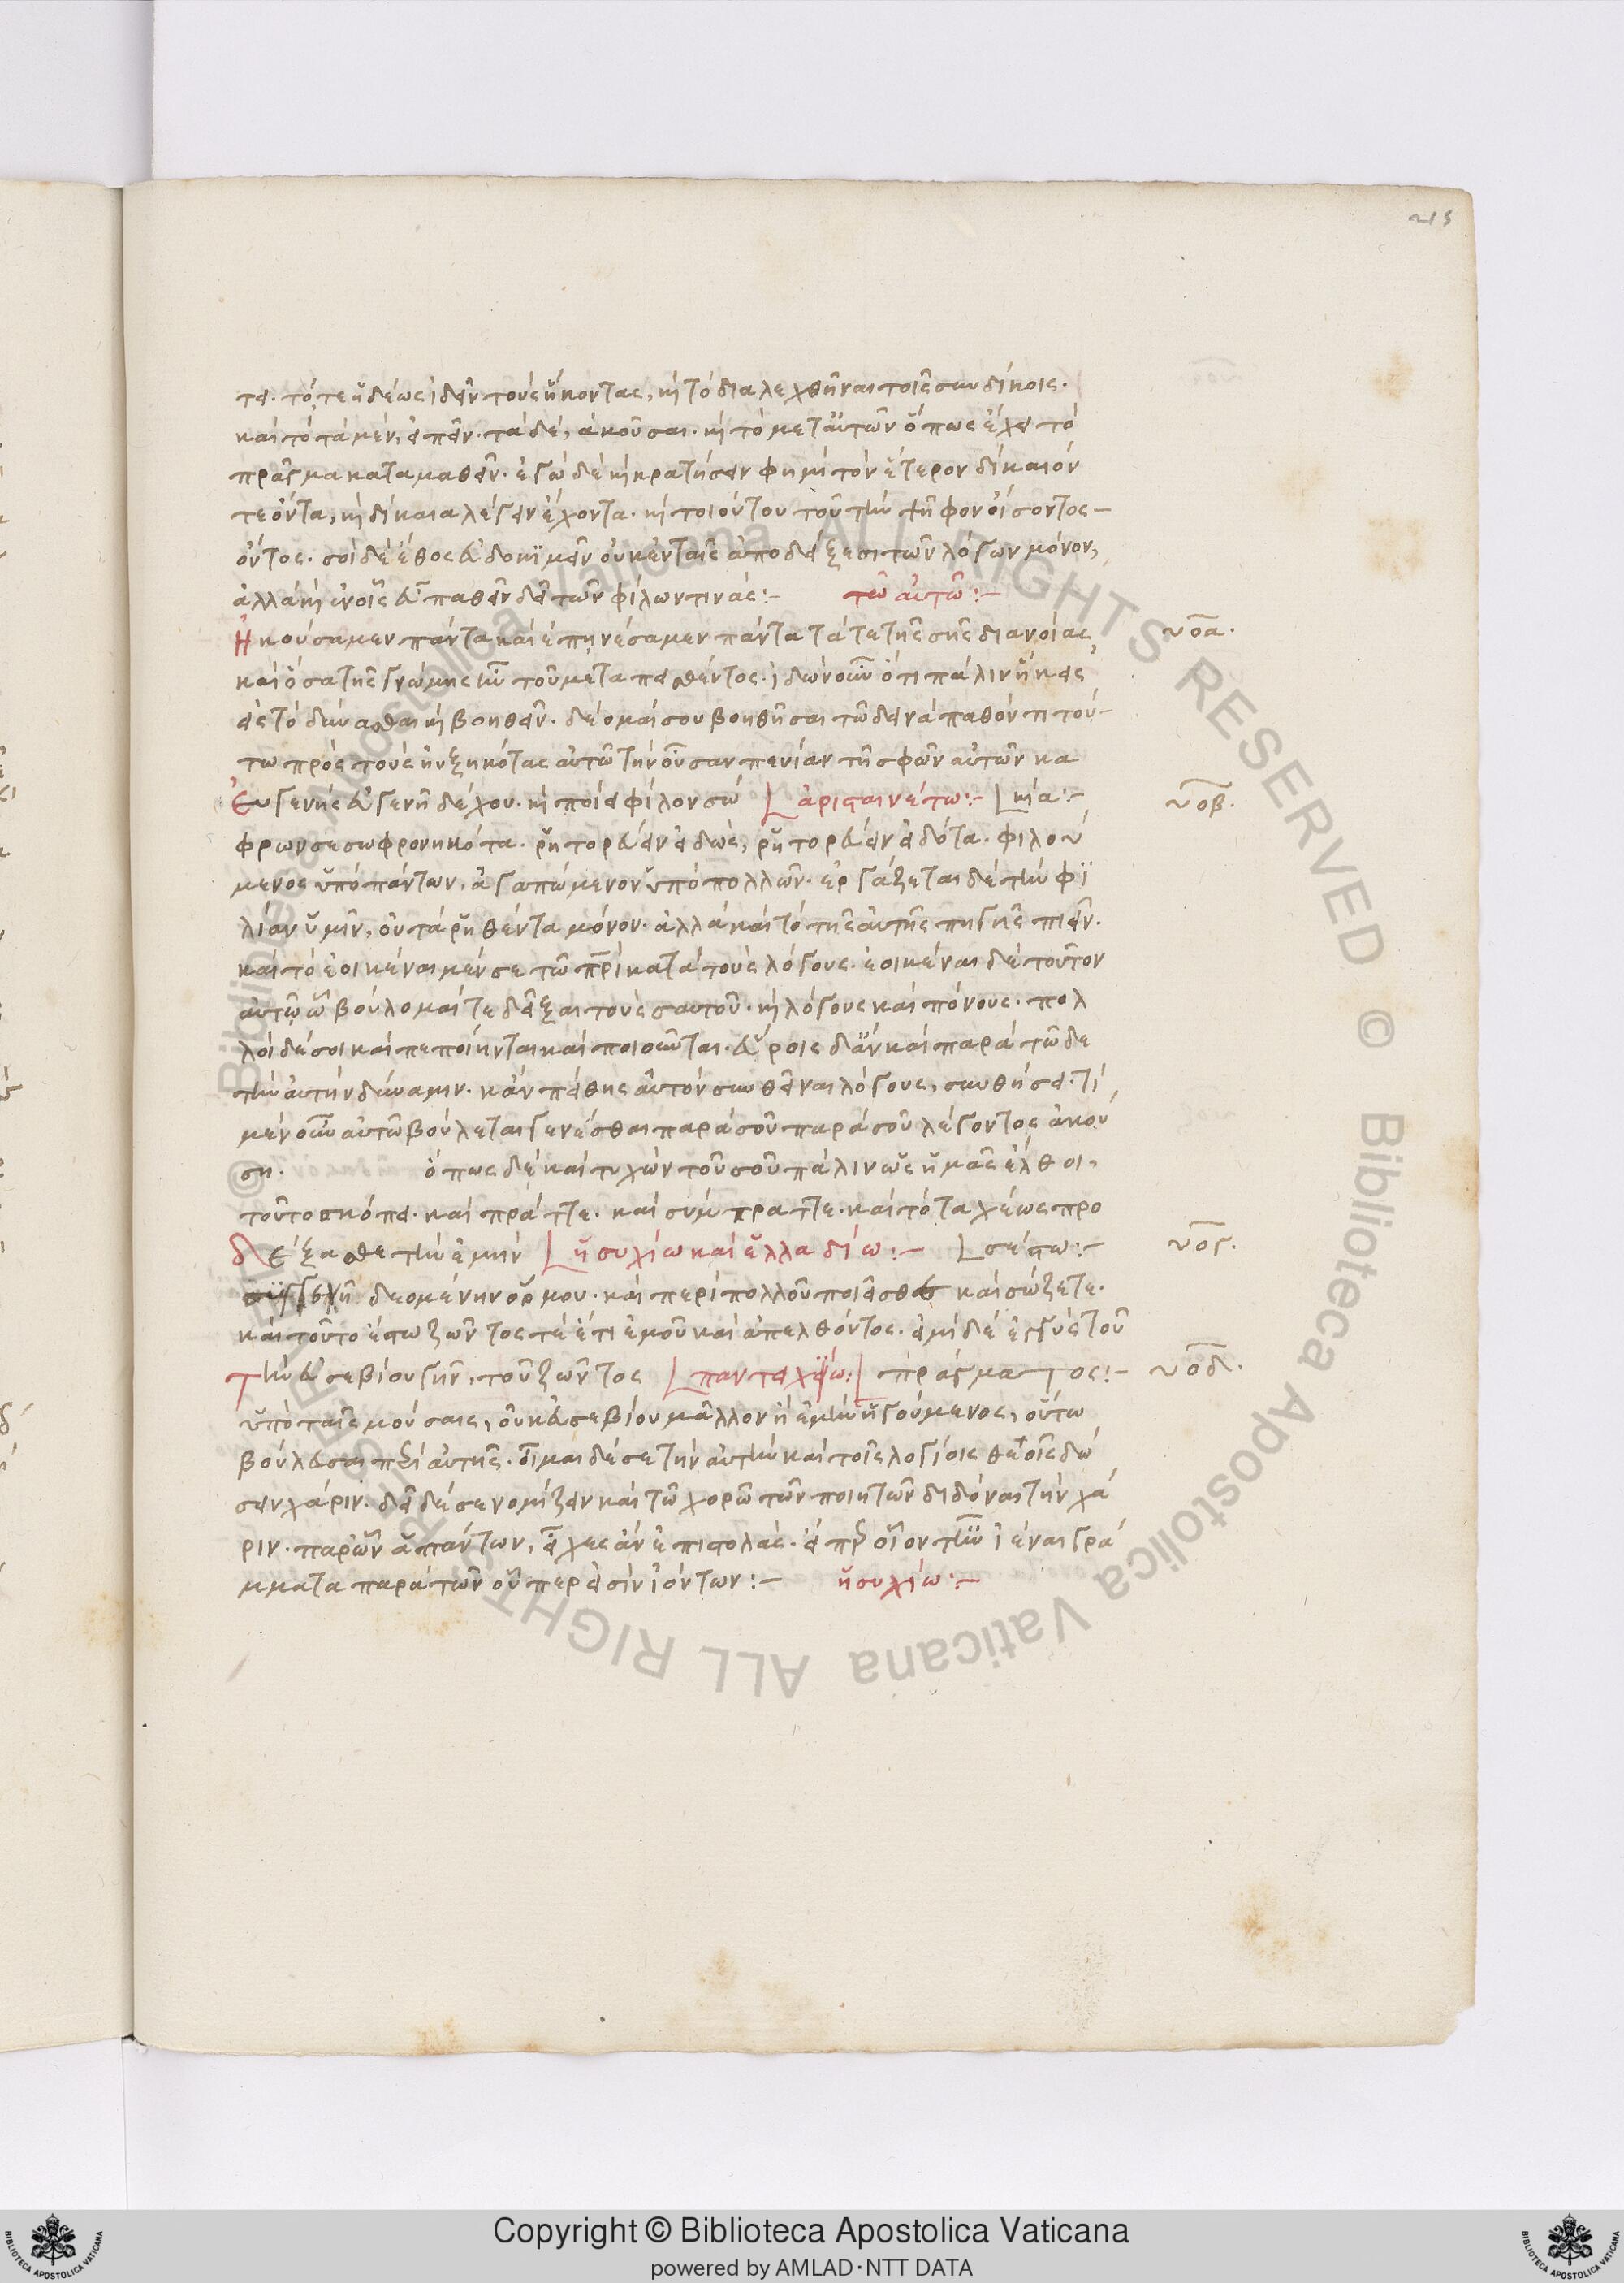 215
τα. τό, τε ἡδέως ἰδεῖν τοὺς ἥκοντας, καὶ τὸ διαλεχθῆναι τοῖς συνδίκοις.
καὶ τὸ τὰ μὲν, εἰπεῖν. τὰ δὲ, ἀκοῦσαι. καὶ τὸ μετ' αὐτῶν ὅπως ἔχει τὸ
πρᾶγμα καταμαθεῖν. ἐγὼ δὲ καὶ κρατήσειν φημὶ τὸν ἕτερον δίκαιόν
τε ὄντα, καὶ δίκαια λέγειν ἔχοντα. καὶ τοιούτου τοῦ τὴν ψῆφον οἴσοντος
ὄντος. σοὶ δὲ ἔθος εὐδοκιμεῖν οὐκ ἐν ταῖς ἀποδείξεσι τῶν λόγων μόνον,
ἀλλὰ καὶ ἐν οἷς εὖ παθεῖν δεῖ τῶν φίλων τινάς:- τῷ αὐτῷ:-
Ἠκούσαμεν πάντα καὶ ἐπῃνέσαμεν πάντα τά τε τῆς σῆς διανοίας υοα.
καὶ ὅσα τῆς γνώμης ἦν τοῦ μεταπεισθέντος. ἰδὼν οὖν ὅτι πάλιν ἥκεις
εἰς τὸ δύνασθαι καὶ βοηθεῖν. δέομαί σου βοηθῆσαι τῷ δεινὰ παθόντι τού-
τῳ πρὸς τοὺς ηὐξηκότας αὐτῷ τὴν οὖσαν πενίαν τῇ σφῶν αὐτῶν κα
Εὐγενὴς εὐγενῆ δέχου. καὶ ποίει φίλον σώ ἀρισταινέτῳ:- κίᾳ:- υοβ.
φρων σεσωφρονηκότα. ῥητορεύειν εἰδὼς, ῥητορεύειν εἰδότα. φιλού
μενος ὑπὸ πάντων. ἀγαπώμενον ὑπὸ πολλῶν. ἐργάζεται δὲ τὴν φι
λίαν ὑμῖν, οὐ τὰ ῥηθέντα μόνον. ἀλλὰ καὶ τὸ τῆς αὐτῆς πηγῆς πιεῖν.
καὶ τὸ ἐοικέναι μέν σε τῷ πρὶ κατὰ τοὺς λόγους. ἐοικέναι δὲ τοῦτον
αὐτῷ ᾧ βούλομαί τε δεῖξαι τοὺς σαυτοῦ. καὶ λόγους καὶ πόνους. πολ
λοὶ δέ σοι καὶ πεποίηνται καὶ ποιοῦνται. εὕροις δ' ἂν καὶ παρὰ τῷδε
τὴν αὐτὴν δύναμιν. κἂν πείθῃς αὐτὸν συνθεῖναι λόγους, συνθήσει. τί
μὲν οὖν αὐτῷ βούλεται γενέσθαι παρὰ σοῦ παρὰ σοῦ λέγοντος ἀκού
σῃ. ὅπως δὲ καὶ τυχὼν τοῦ σοῦ πάλιν ὡς ἡμᾶς ἔλθοι,
τοῦτο σκόπει. καὶ πρᾶττε. καὶ σύμπραττε. καὶ τὸ ταχέως προ
Δέξασθε τὴν ἐμὴν ἡσυχίῳ καὶ ἑλλαδίῳ:- σέστω:- υογ.
δεομένην ὅρμου. καὶ περὶ πολλοῦ ποιεῖσθε καὶ σώζετε.
καὶ τοῦτο ἔστω ζῶντός τε ἔτι ἐμοῦ καὶ ἀπελθόντος. εἰμὶ δὲ ἐγγὺς τοῦ
Τὴν εὐσεβίου γῆν, τοῦ ζῶντος πράγματος:- υοδ.
ὑπὸ ταῖς μούσαις, οὐκ εὐσεβίου μᾶλλον ἢ ἐμὴν ἡγούμενος, οὕτω
βούλευσαι περὶ αὐτῆς. οἶμαι δέ σε τὴν αὐτὴν καὶ τοῖς λογίοις θεοῖς δώ
σειν χάριν. δεῖ δέ σε νομίζειν καὶ τῷ χορῷ τῶν ποιητῶν διδόναι τὴν χά
ριν. παρ' ὧν ἁπάντων, εἶχες ἂν ἐπιστολὰς. εἴπερ οἷόν τ' ἦν ἰέναι γρά
μματα παρὰ τῶν οὗπερ εἰσὶν ἰόντων:- ἡσυχίῳ:-
Copyright © Biblioteca Apostolica Vaticana
powered by AMLAD·NTT DATA